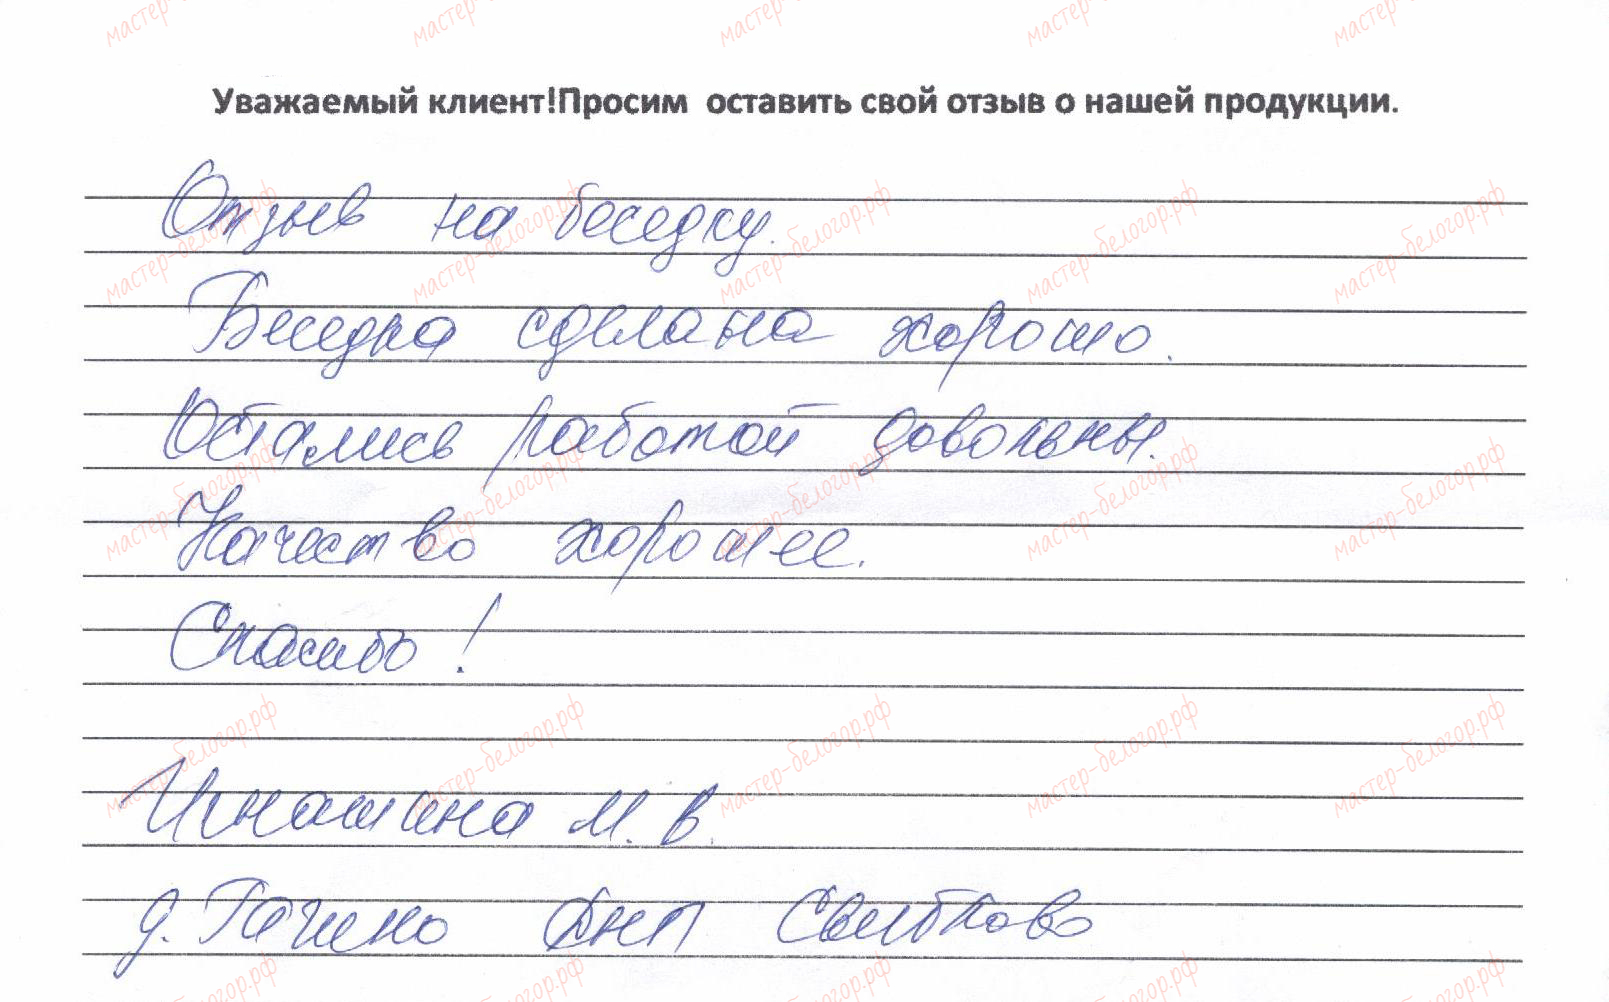 Уважаемый клиент!Просим оставить свой отзыв о нашей продукции.
Отзыв на беседку.
Беседка сделана хорошо.
Остались работой довольны.
Качество хорошее.
Спасибо!
Игнашина М.В.
д. ДНП
мастер-белогор.рф